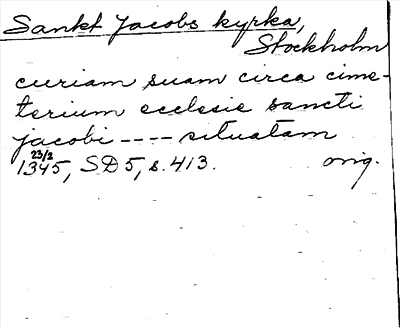 Sankt Jacobs kyrka,
Stockholm
curiam suam circa cime-
terium ecclesie sancti
jacobi ---- situatam
23/2
1345, SD5, s. 413. orig.